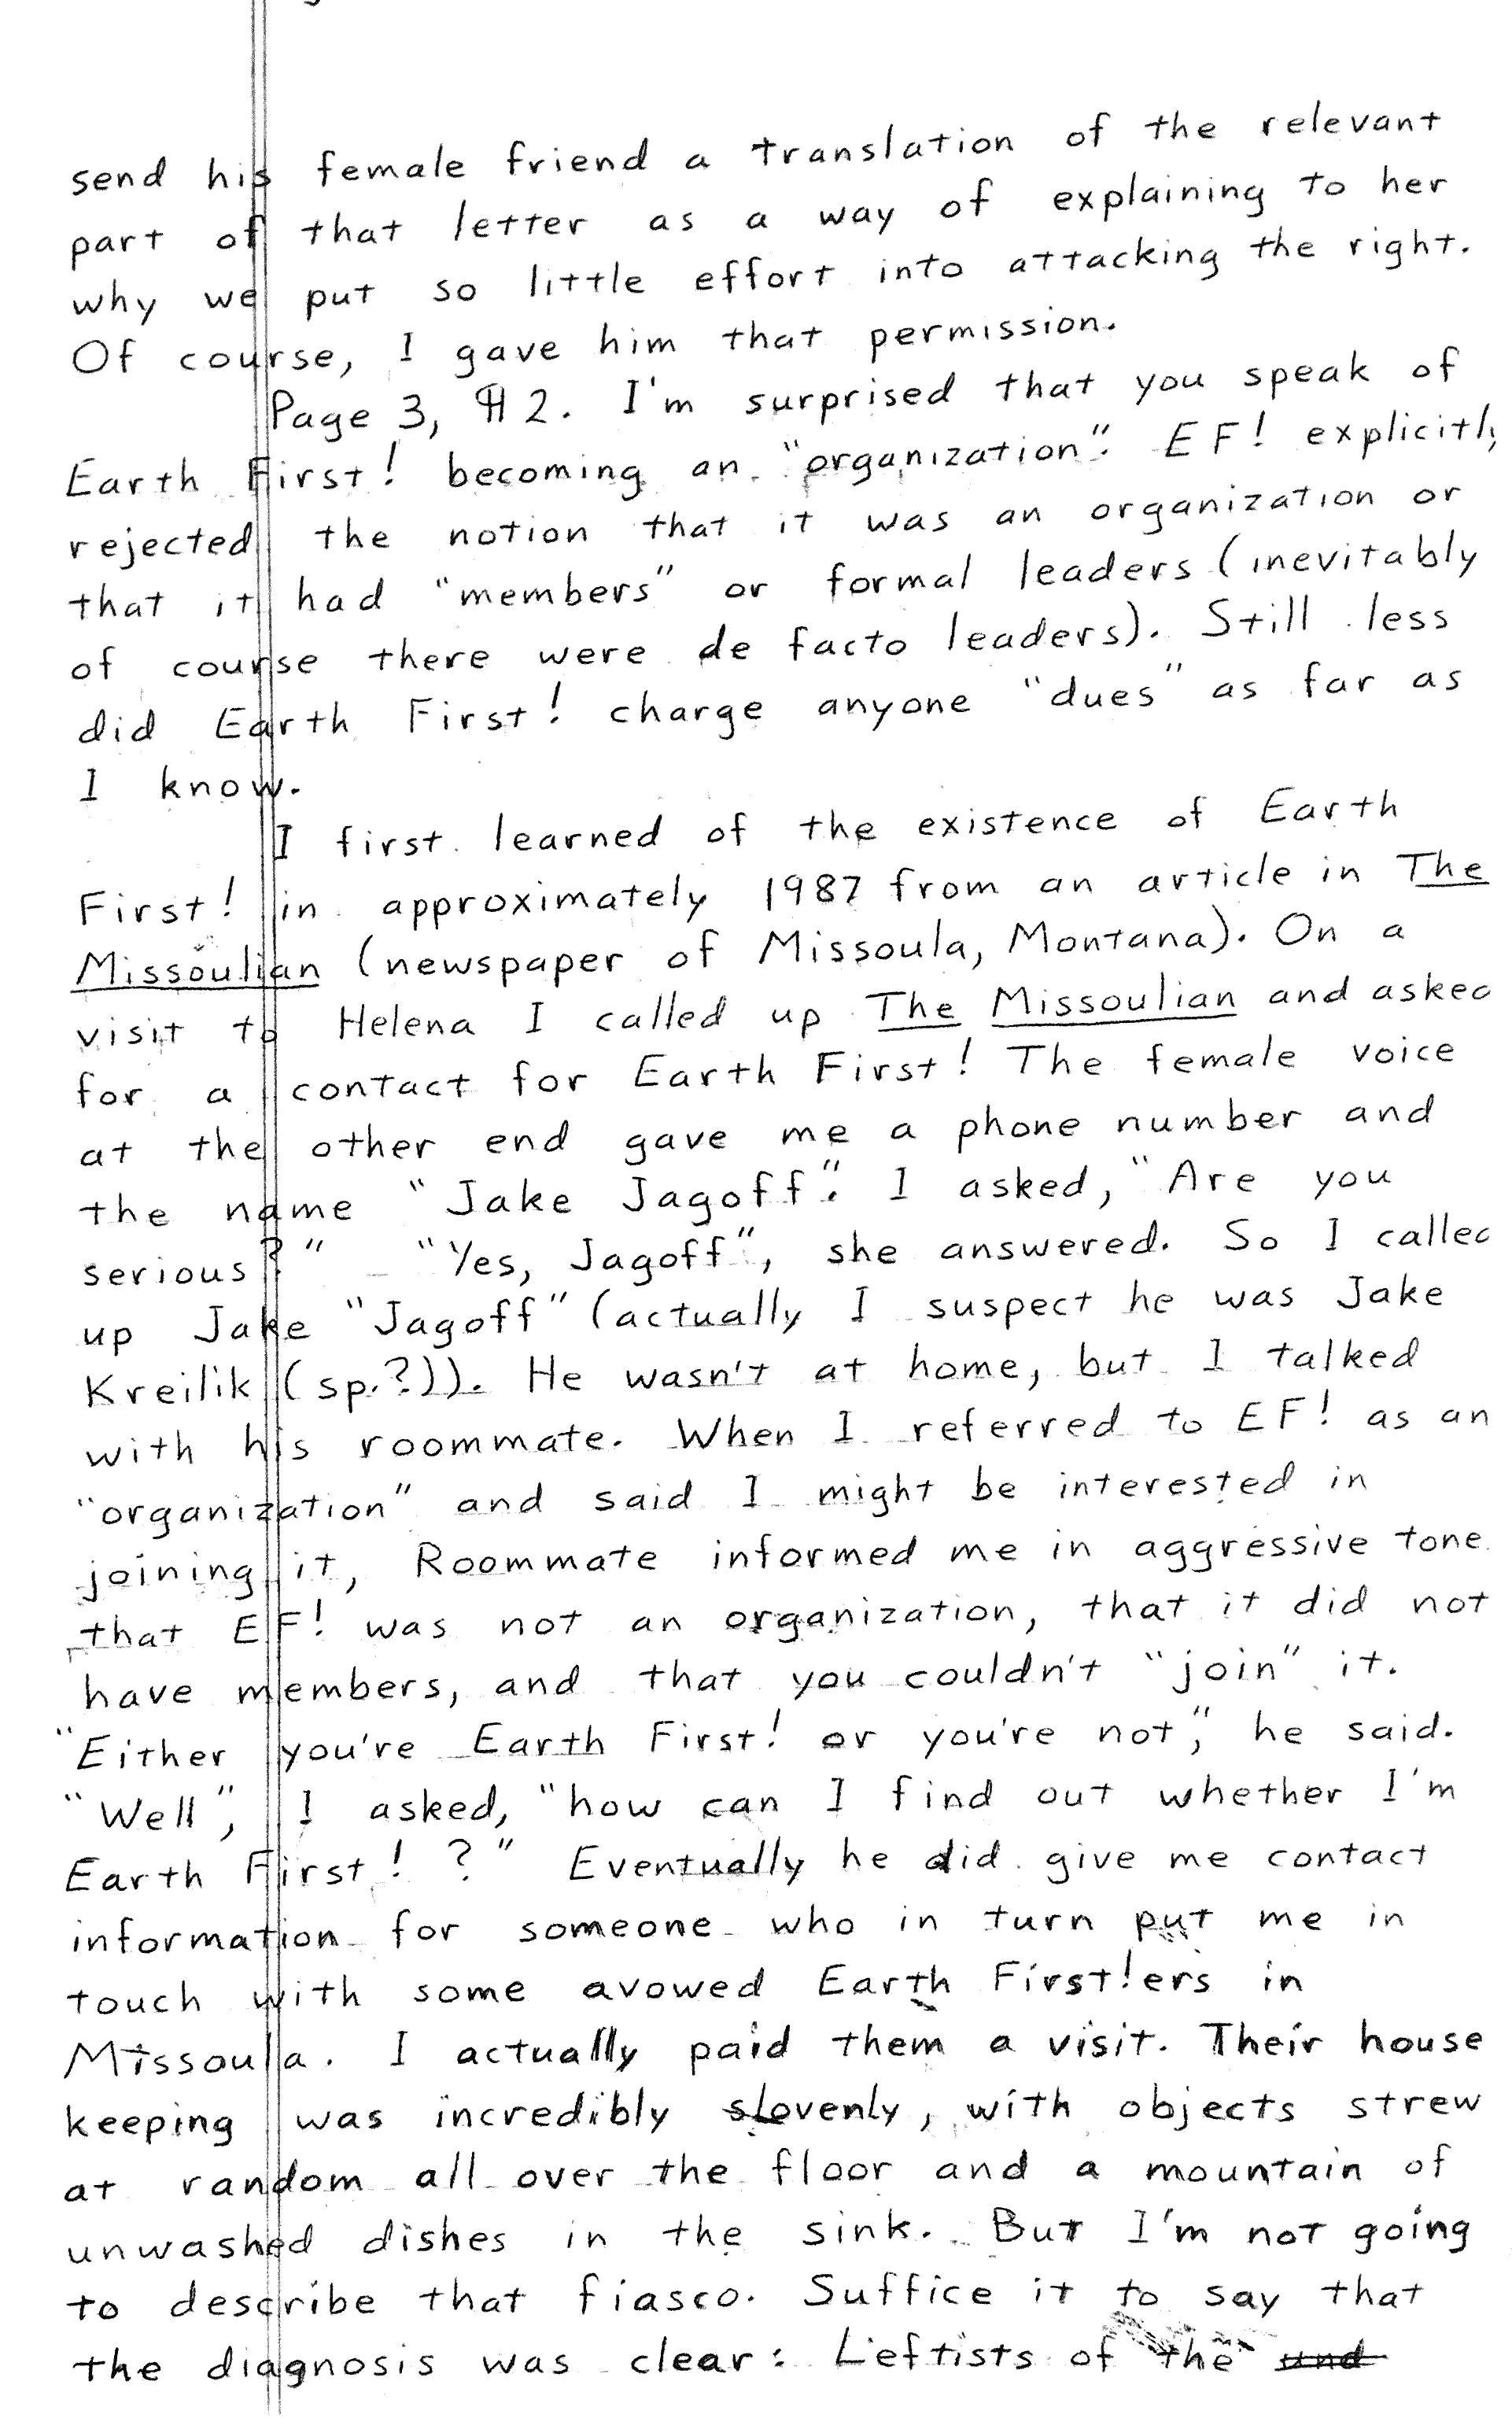 send his female friend a translation of the relevant
part of that letter as a way of explaining to her
why we put so little effort into attacking the right.
Of course, I gave him that permission.
Page 3, ¶ 2. I'm surprised that you speak of
Earth First! becoming an "organization". EF! explicitly
rejected the notion that it was an organization or
that it had "members" or formal leaders (inevitably
of course there were de facto leaders). Still less
did Earth First! charge anyone "dues" as far as
I know.
I first learned of the existence of Earth
First! in approximately 1987 from an article in The
Missoulian (newspaper of Missoula, Montana). On a
visit to Helena I called up The Missoulian and asked
for a contact for Earth First! The female voice
at the other end gave me a phone number and
the name "Jake Jagoff". I asked, "Are you
serious?" "Yes, Jagoff", she answered. So I called
up Jake "Jagoff" (actually I suspect he was Jake
Kreilik (sp.?)). He wasn't at home, but I talked
with his roommate. When I referred to EF! as an
"organization" and said I might be interested in
joining it, Roommate informed me in aggressive tone
that EF! was not an organization, that it did not
have members, and that you couldn't "join" it.
"Either you're Earth First! or you're not", he said.
"Well", I asked, "how can I find out whether I'm
Earth First! ?" Eventually he did give me contact
information for someone who in turn put me in
touch with some avowed Earth First!ers in
Missoula. I actually paid them a visit. Their house
keeping was incredibly slovenly, with objects strew
at random all over the floor and a mountain of
unwashed dishes in the sink. But I'm not going
to describe that fiasco. Suffice it to say that
the diagnosis was clear: Leftists of the und